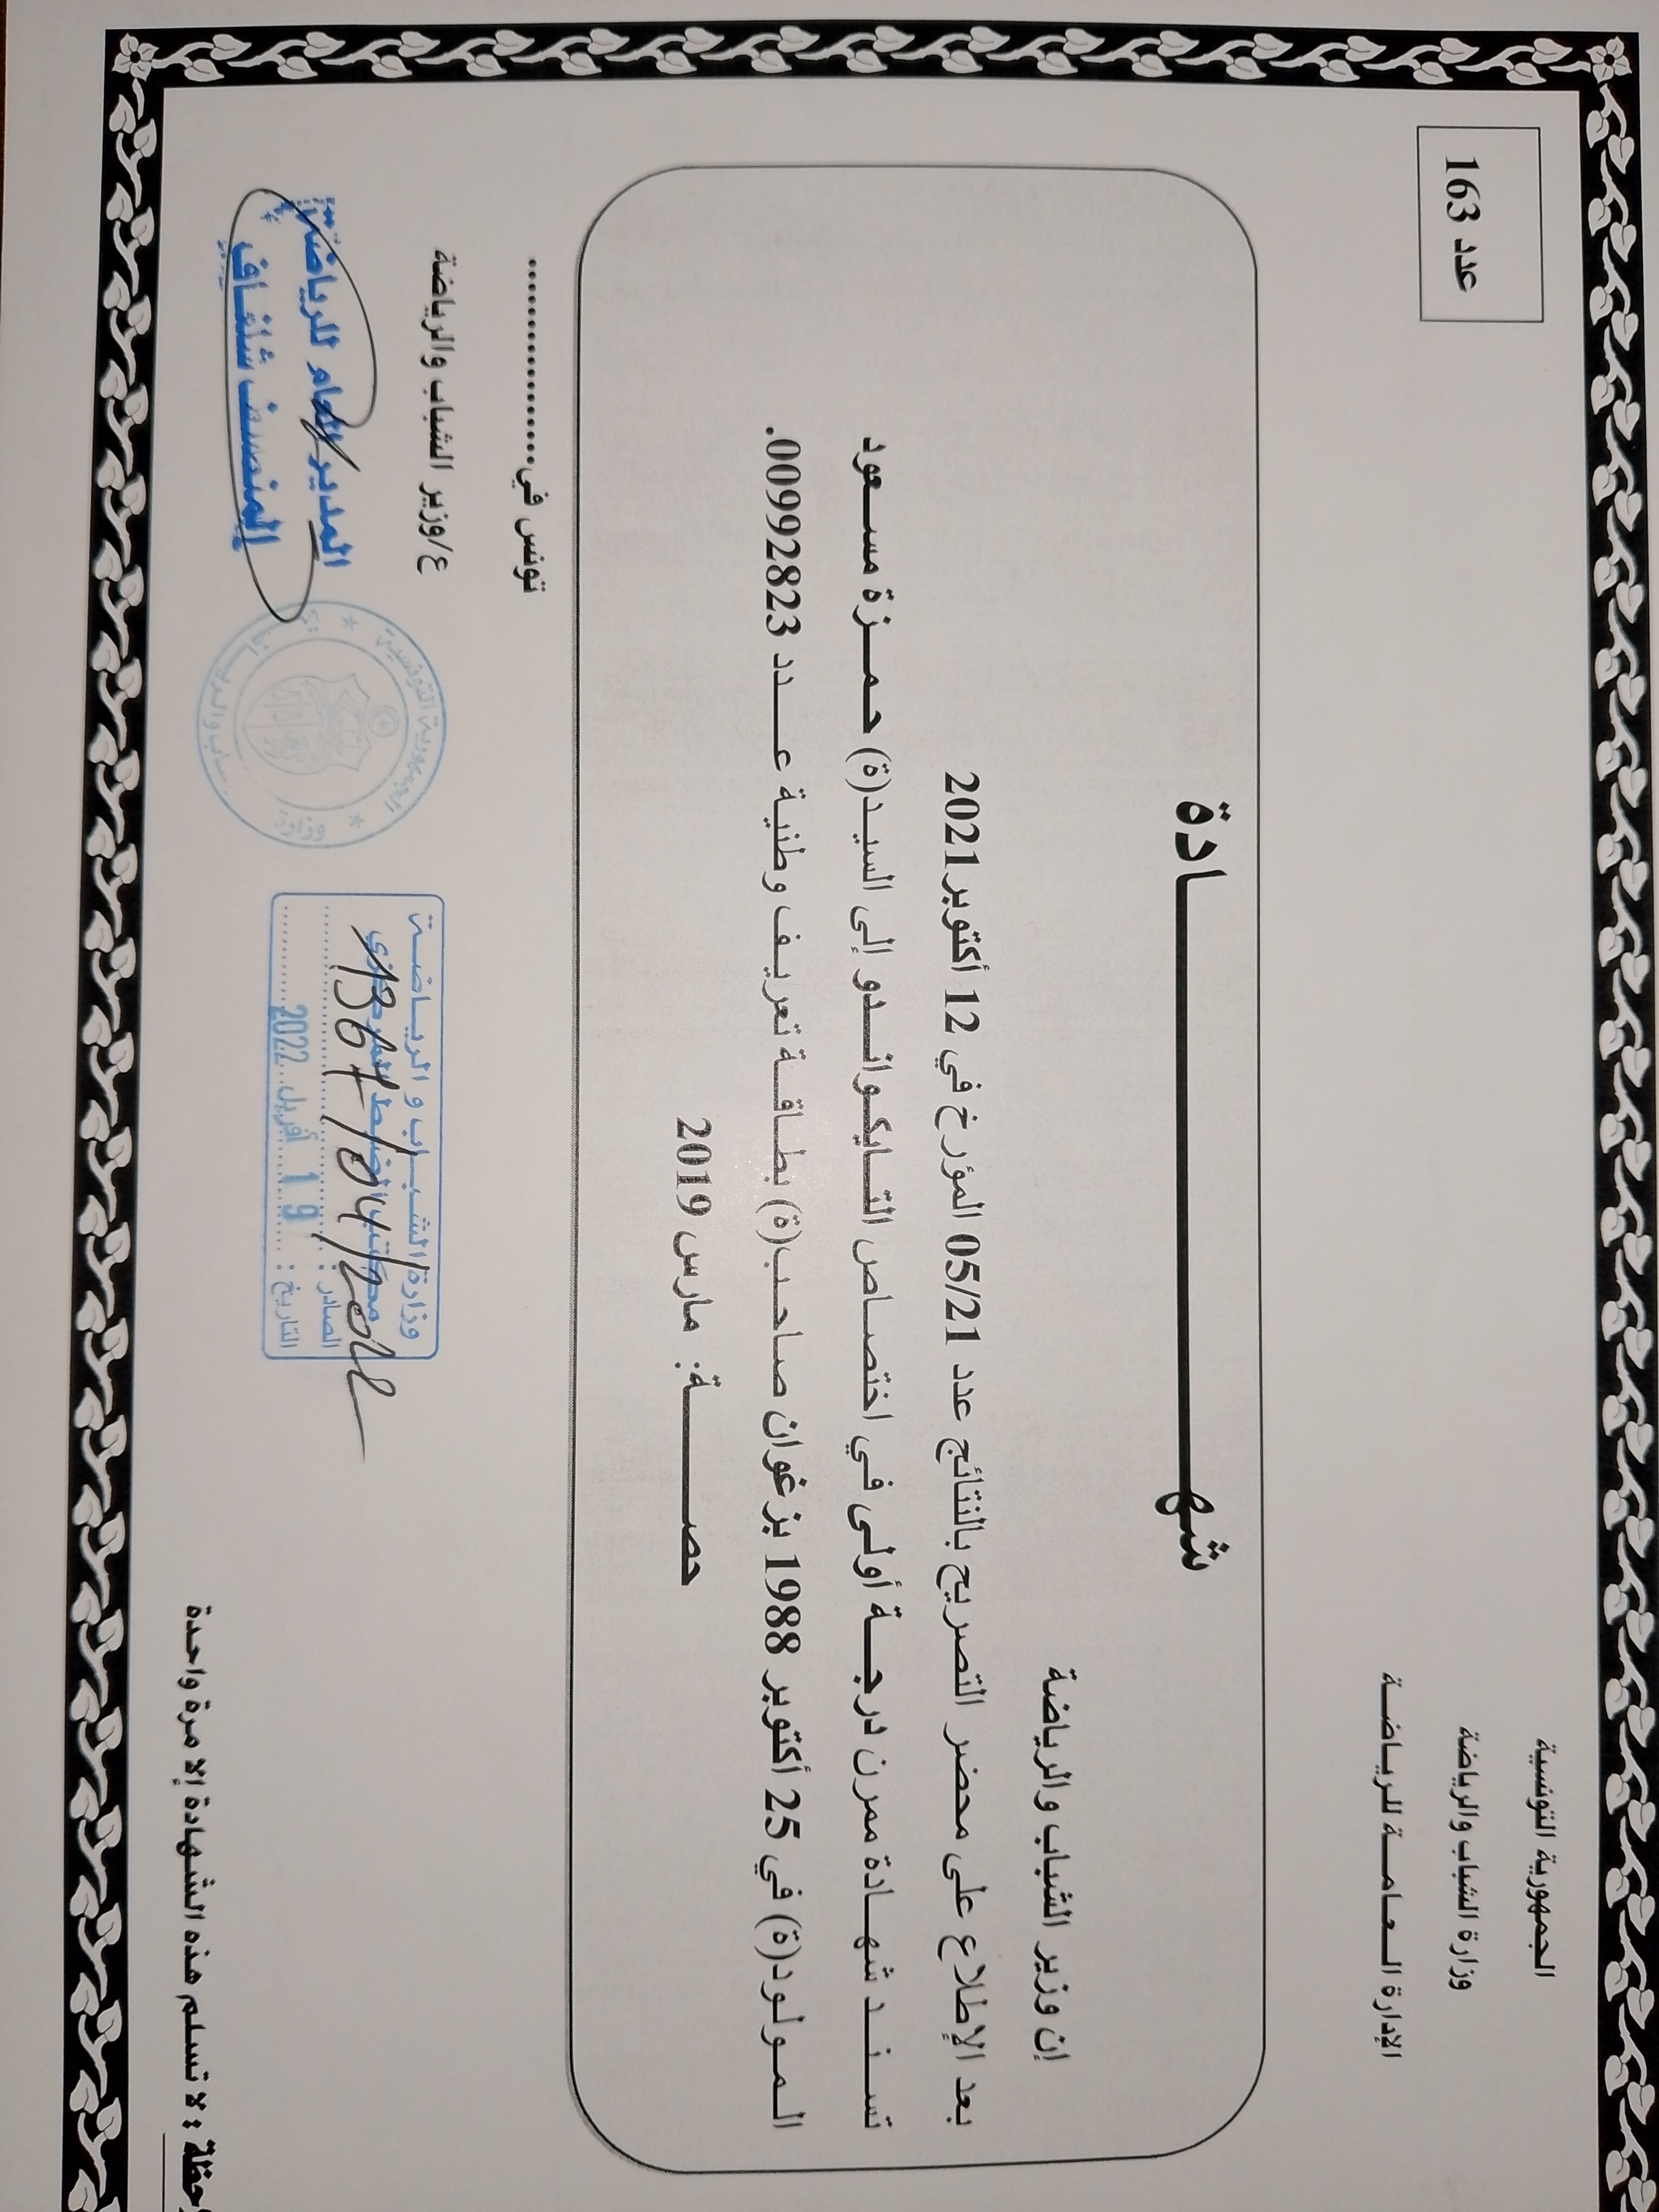 الجمهورية التونسية
وزارة الشباب والرياضة
الإدارة العامة للرياضة
عدد 163
شهادة
إن وزير الشباب والرياضة
بعد الإطلاع على محضر التصريح بالنتائج عدد 05/21 المؤرخ في 12 أكتوبر 2021
تسند شهادة ممرن درجة أولى في اختصاص التايكواندو إلى السيد(ة) حمزة مسعود
المولود(ة) في 25 أكتوبر 1988 بزغوان صاحب(ة) بطاقة تعريف وطنية عدد 00992823.
حصة: مارس 2019
تونس في................
ع/وزير الشباب والرياضة
المدير العام للرياضة
المنصف شلغاف
الجمهورية التونسية
وزارة
وزارة الشباب و الرياضة
مكتب الضبط المركزي
الصادر :
التاريخ : 19 أفريل 2022
لا تسلم هذه الشهادة إلا مرة واحدة